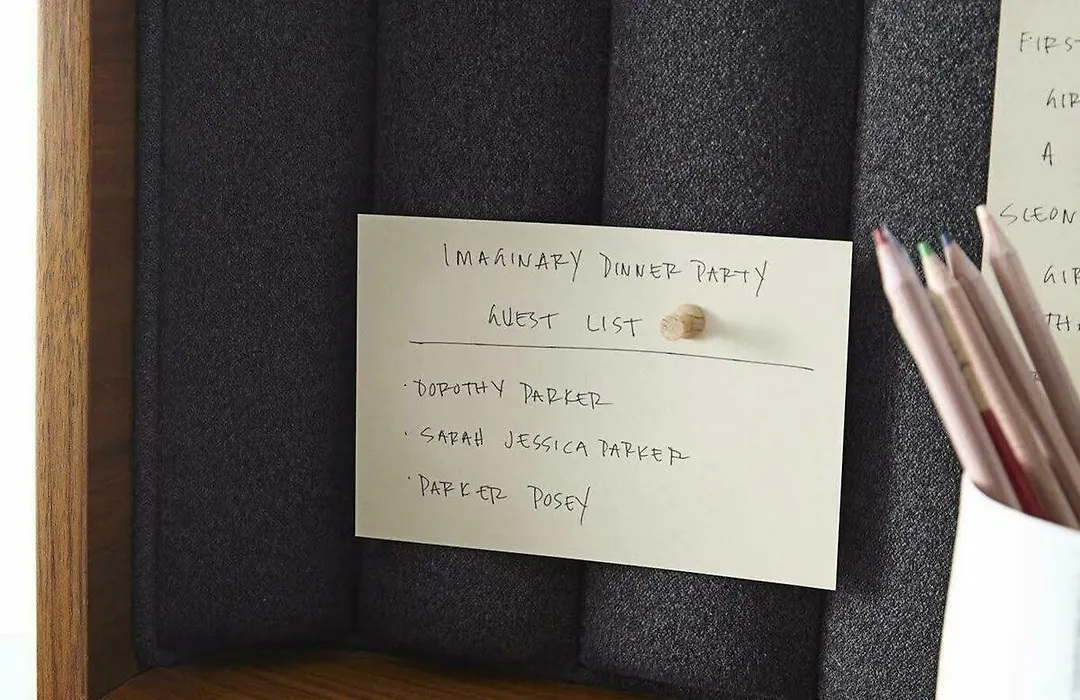 IMAGINARY DINNER PARTY
GUEST LIST
· DOROTHY PARKER
· SARAH JESSICA PARKER
· PARKER POSEY
A